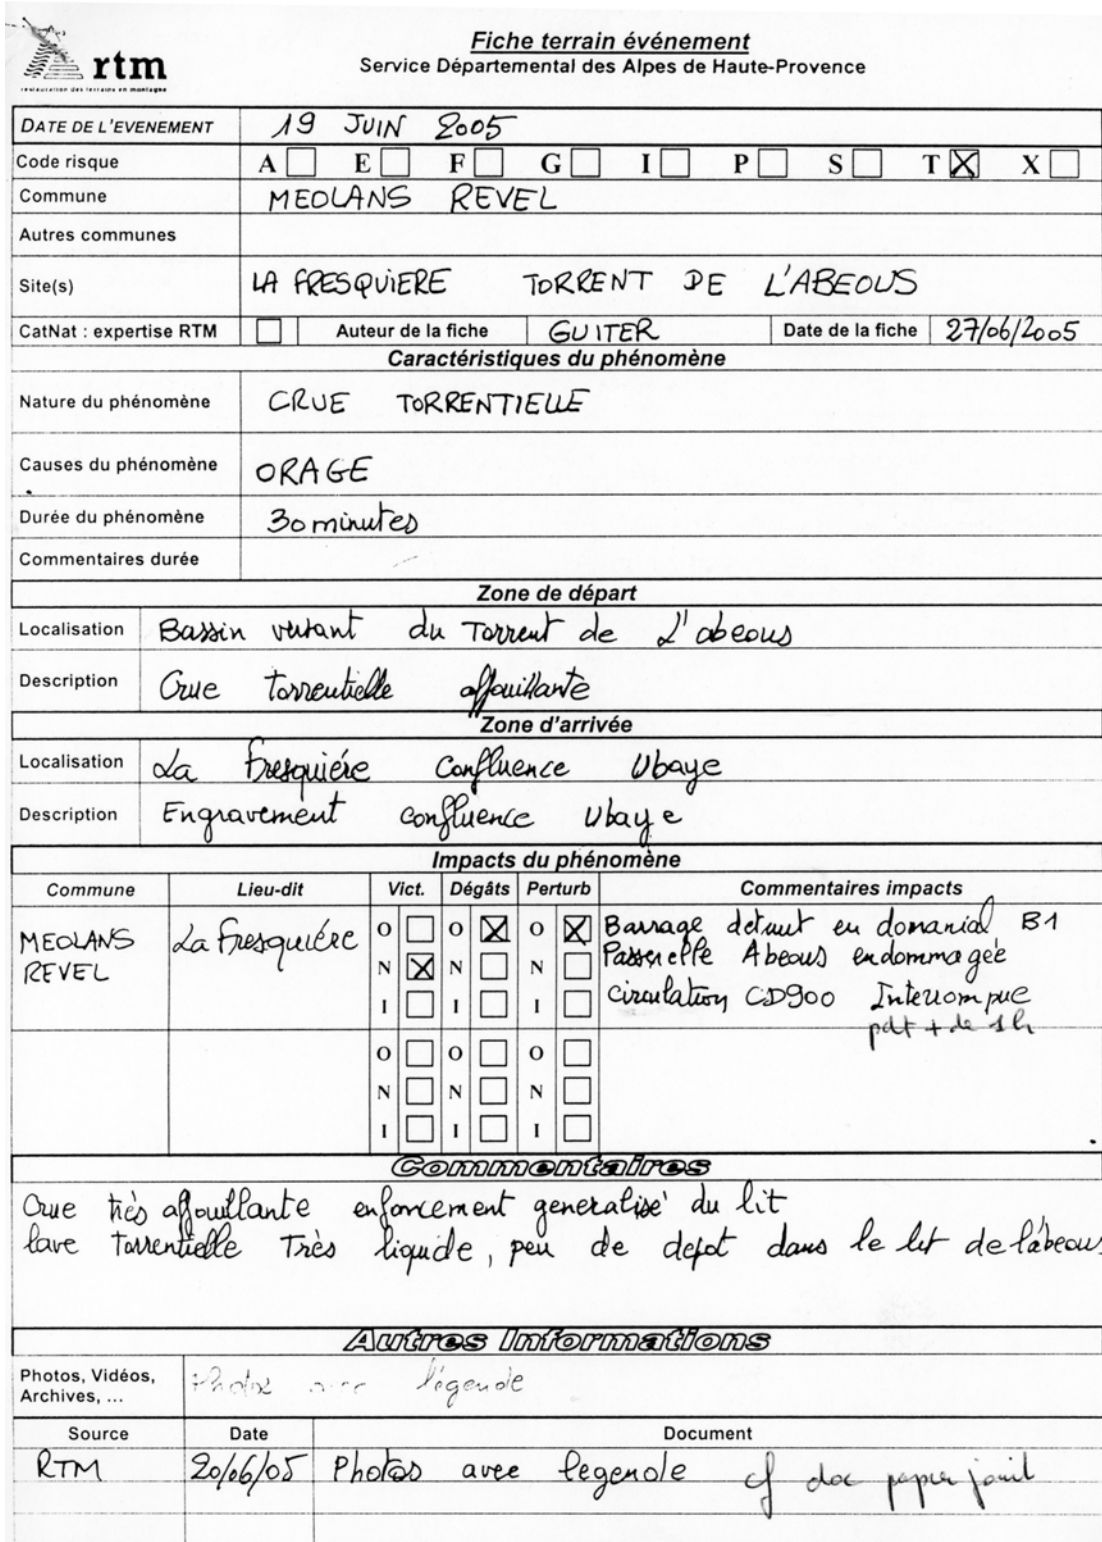 Fiche terrain événement
rtm
Service Départemental des Alpes de Haute-Provence
restauration des terrains en montagne
DATE DE L'EVENEMENT 19 JUIN 2005
Code risque A E F G I P S T X
Commune MEOLANS REVEL
Autres communes
Site(s) LA FRESQUIERE TORRENT DE L'ABEOUS
CatNat : expertise RTM Auteur de la fiche GUITER Date de la fiche 27/06/2005
Caractéristiques du phénomène
Nature du phénomène CRUE TORRENTIELLE
Causes du phénomène ORAGE
Durée du phénomène 30 minutes
Commentaires durée
Zone de départ
Localisation Bassin versant du Torrent de L'abeous
Description Crue torrentielle affouillante
Zone d'arrivée
Localisation La Fresquiére Confluence Ubaye
Description Engravement confluence Ubaye
Impacts du phénomène
Commune Lieu-dit Vict. Dégâts Perturb Commentaires impacts
MEOLANS La Fresquiére O O O Barrage detruit en domanial B1
REVEL N N N Passerelle Abeous endommagée
I I I Circulation CD900 Interrompue
pdt + de 1h
O O O
N N N
I I I
Commentaires
Crue très affouillante enfoncement generalisé du lit
lave torrentielle Très liquide, peu de depot dans le lit de l'abeous
Autres Informations
Photos, Vidéos, Photos avec légende
Archives, ...
Source Date Document
RTM 20/06/05 Photos avec legende cf doc papier joint